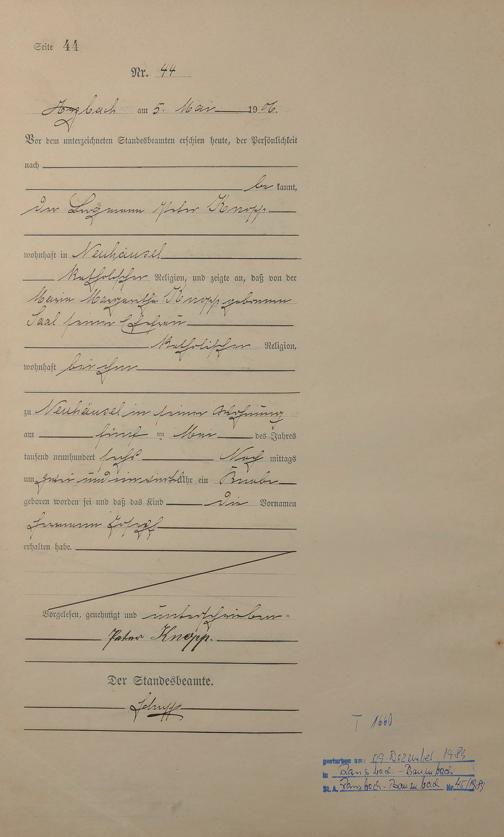 Seite 44
Nr. 44
am 5. Mai 1906.
Vor dem unterzeichneten Standesbeamten erschien heute, der Persönlichkeit
nach
be kannt,
der Peter Knopp
wohnhaft in Neuhäusel
katholischer Religion, und zeigte an, daß von der
Maria Margaretha Knopp geborenen
Saal seiner Ehefrau
katholischer Religion,
wohnhaft bei ihm
zu Neuhäusel in seiner Wohnung
am fünf ten Mai des Jahres
tausend neunhundert sechs Nach mittags
um Uhr ein Knabe
geboren worden sei und daß das Kind die Vornamen
Hermann Josef
erhalten habe.
Vorgelesen, genehmigt und unterschrieben.
Peter Knopp.
Der Standesbeamte.
T
gestorben am: 09. Dezember 1989
in Ransbach-Baumbach
St. A. Ransbach-Baumbach Nr. 45/1989